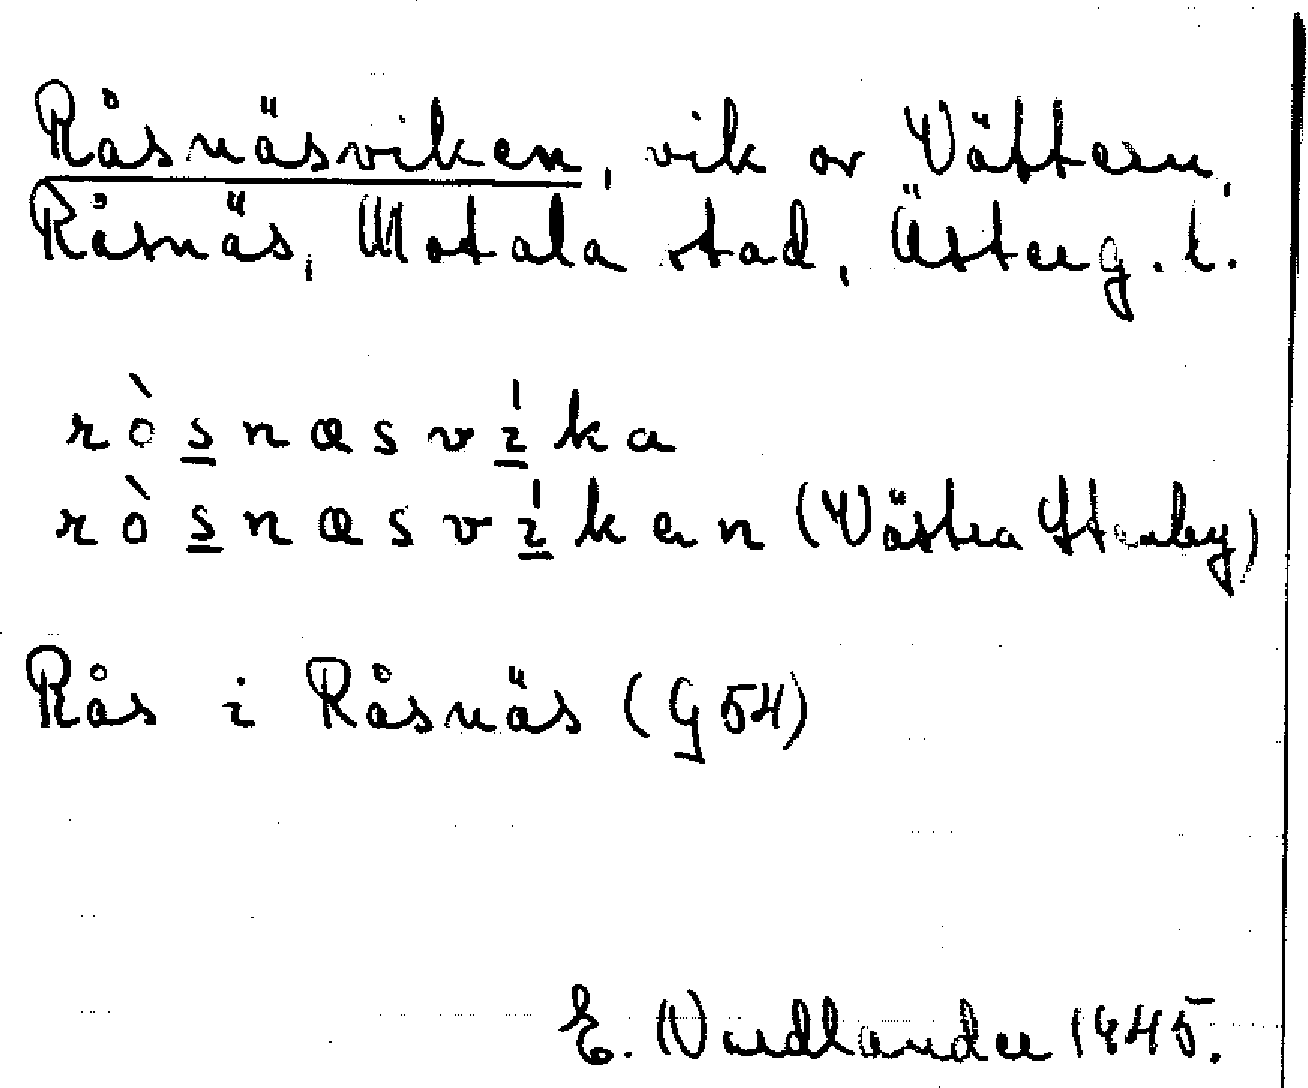 Råsnäsviken, vik av Vättern,
Råsnäs, Motala stad, Österg. l.
ròsnæsvíka
ròsnæsvíkan (Västra Stenby)
Rås i Råsnäs (G54)
E. Nordlander 1945.